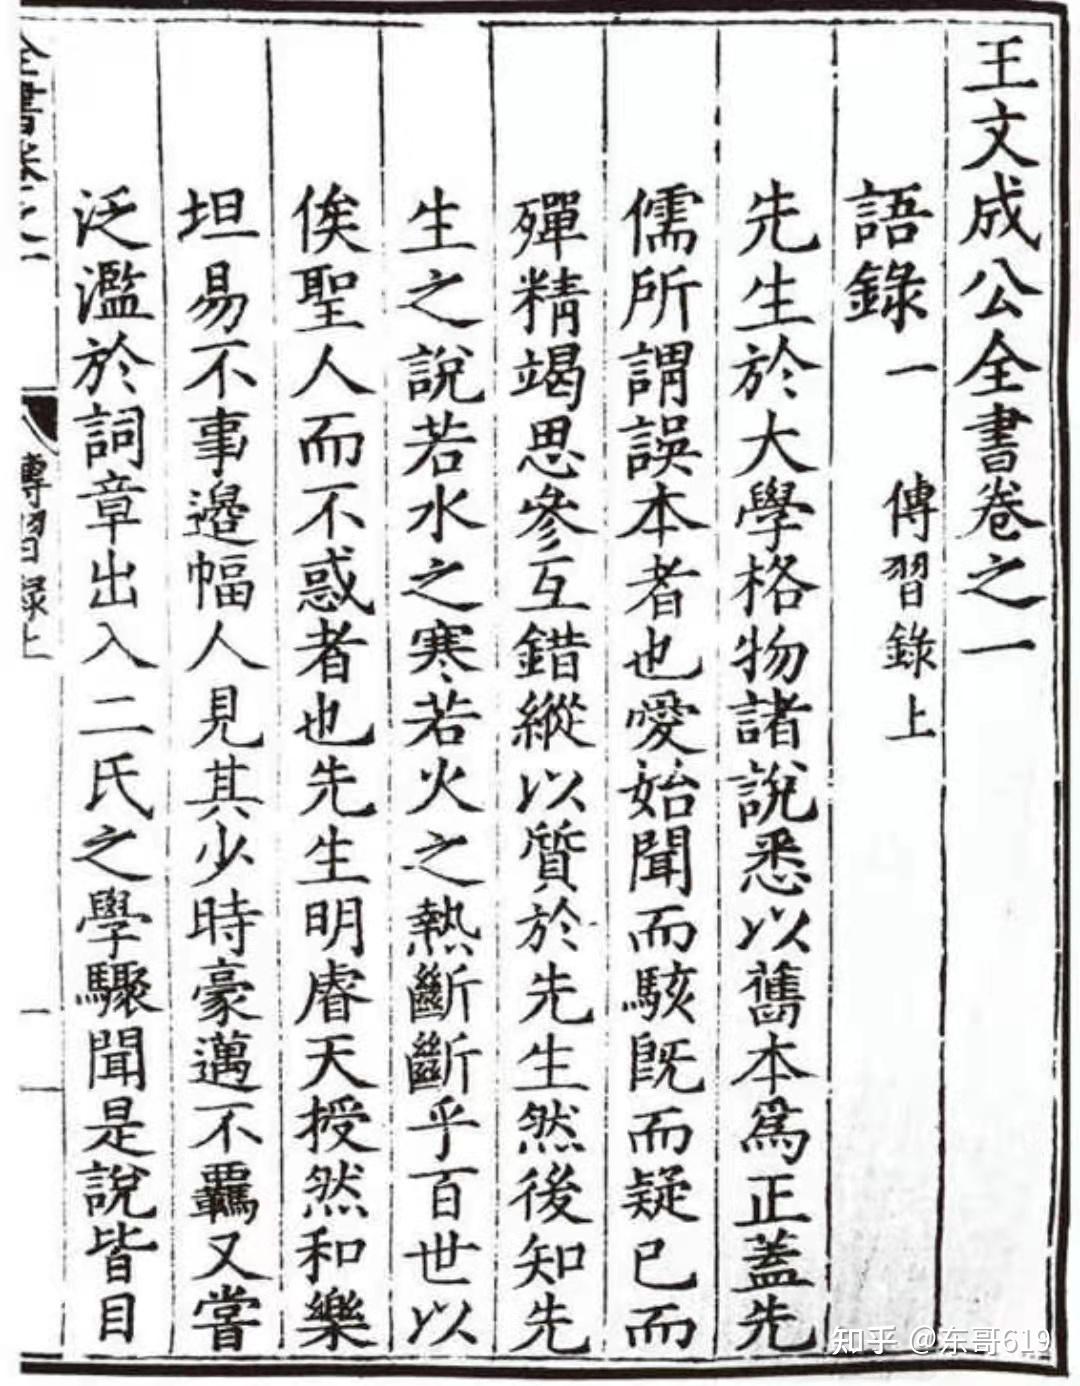 王文成公全書卷之一
語錄一　傳習錄上
先生於大學格物諸說悉以舊本爲正蓋先
儒所謂誤本者也愛始聞而駭旣而疑已而
殫精竭思參互錯縱以質於先生然後知先
生之說若水之寒若火之熱斷斷乎百世以
俟聖人而不惑者也先生明睿天授然和樂
坦易不事邉幅人見其少時豪邁不羈又嘗
泛濫於詞章出入二氏之學驟聞是說皆目
全書卷之一
傳習録上
一
知乎 @东哥619